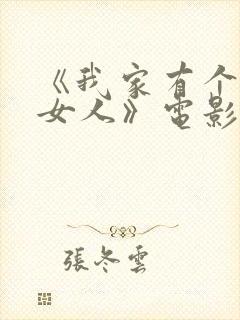 《我家有个
女人》电影
張冬雲